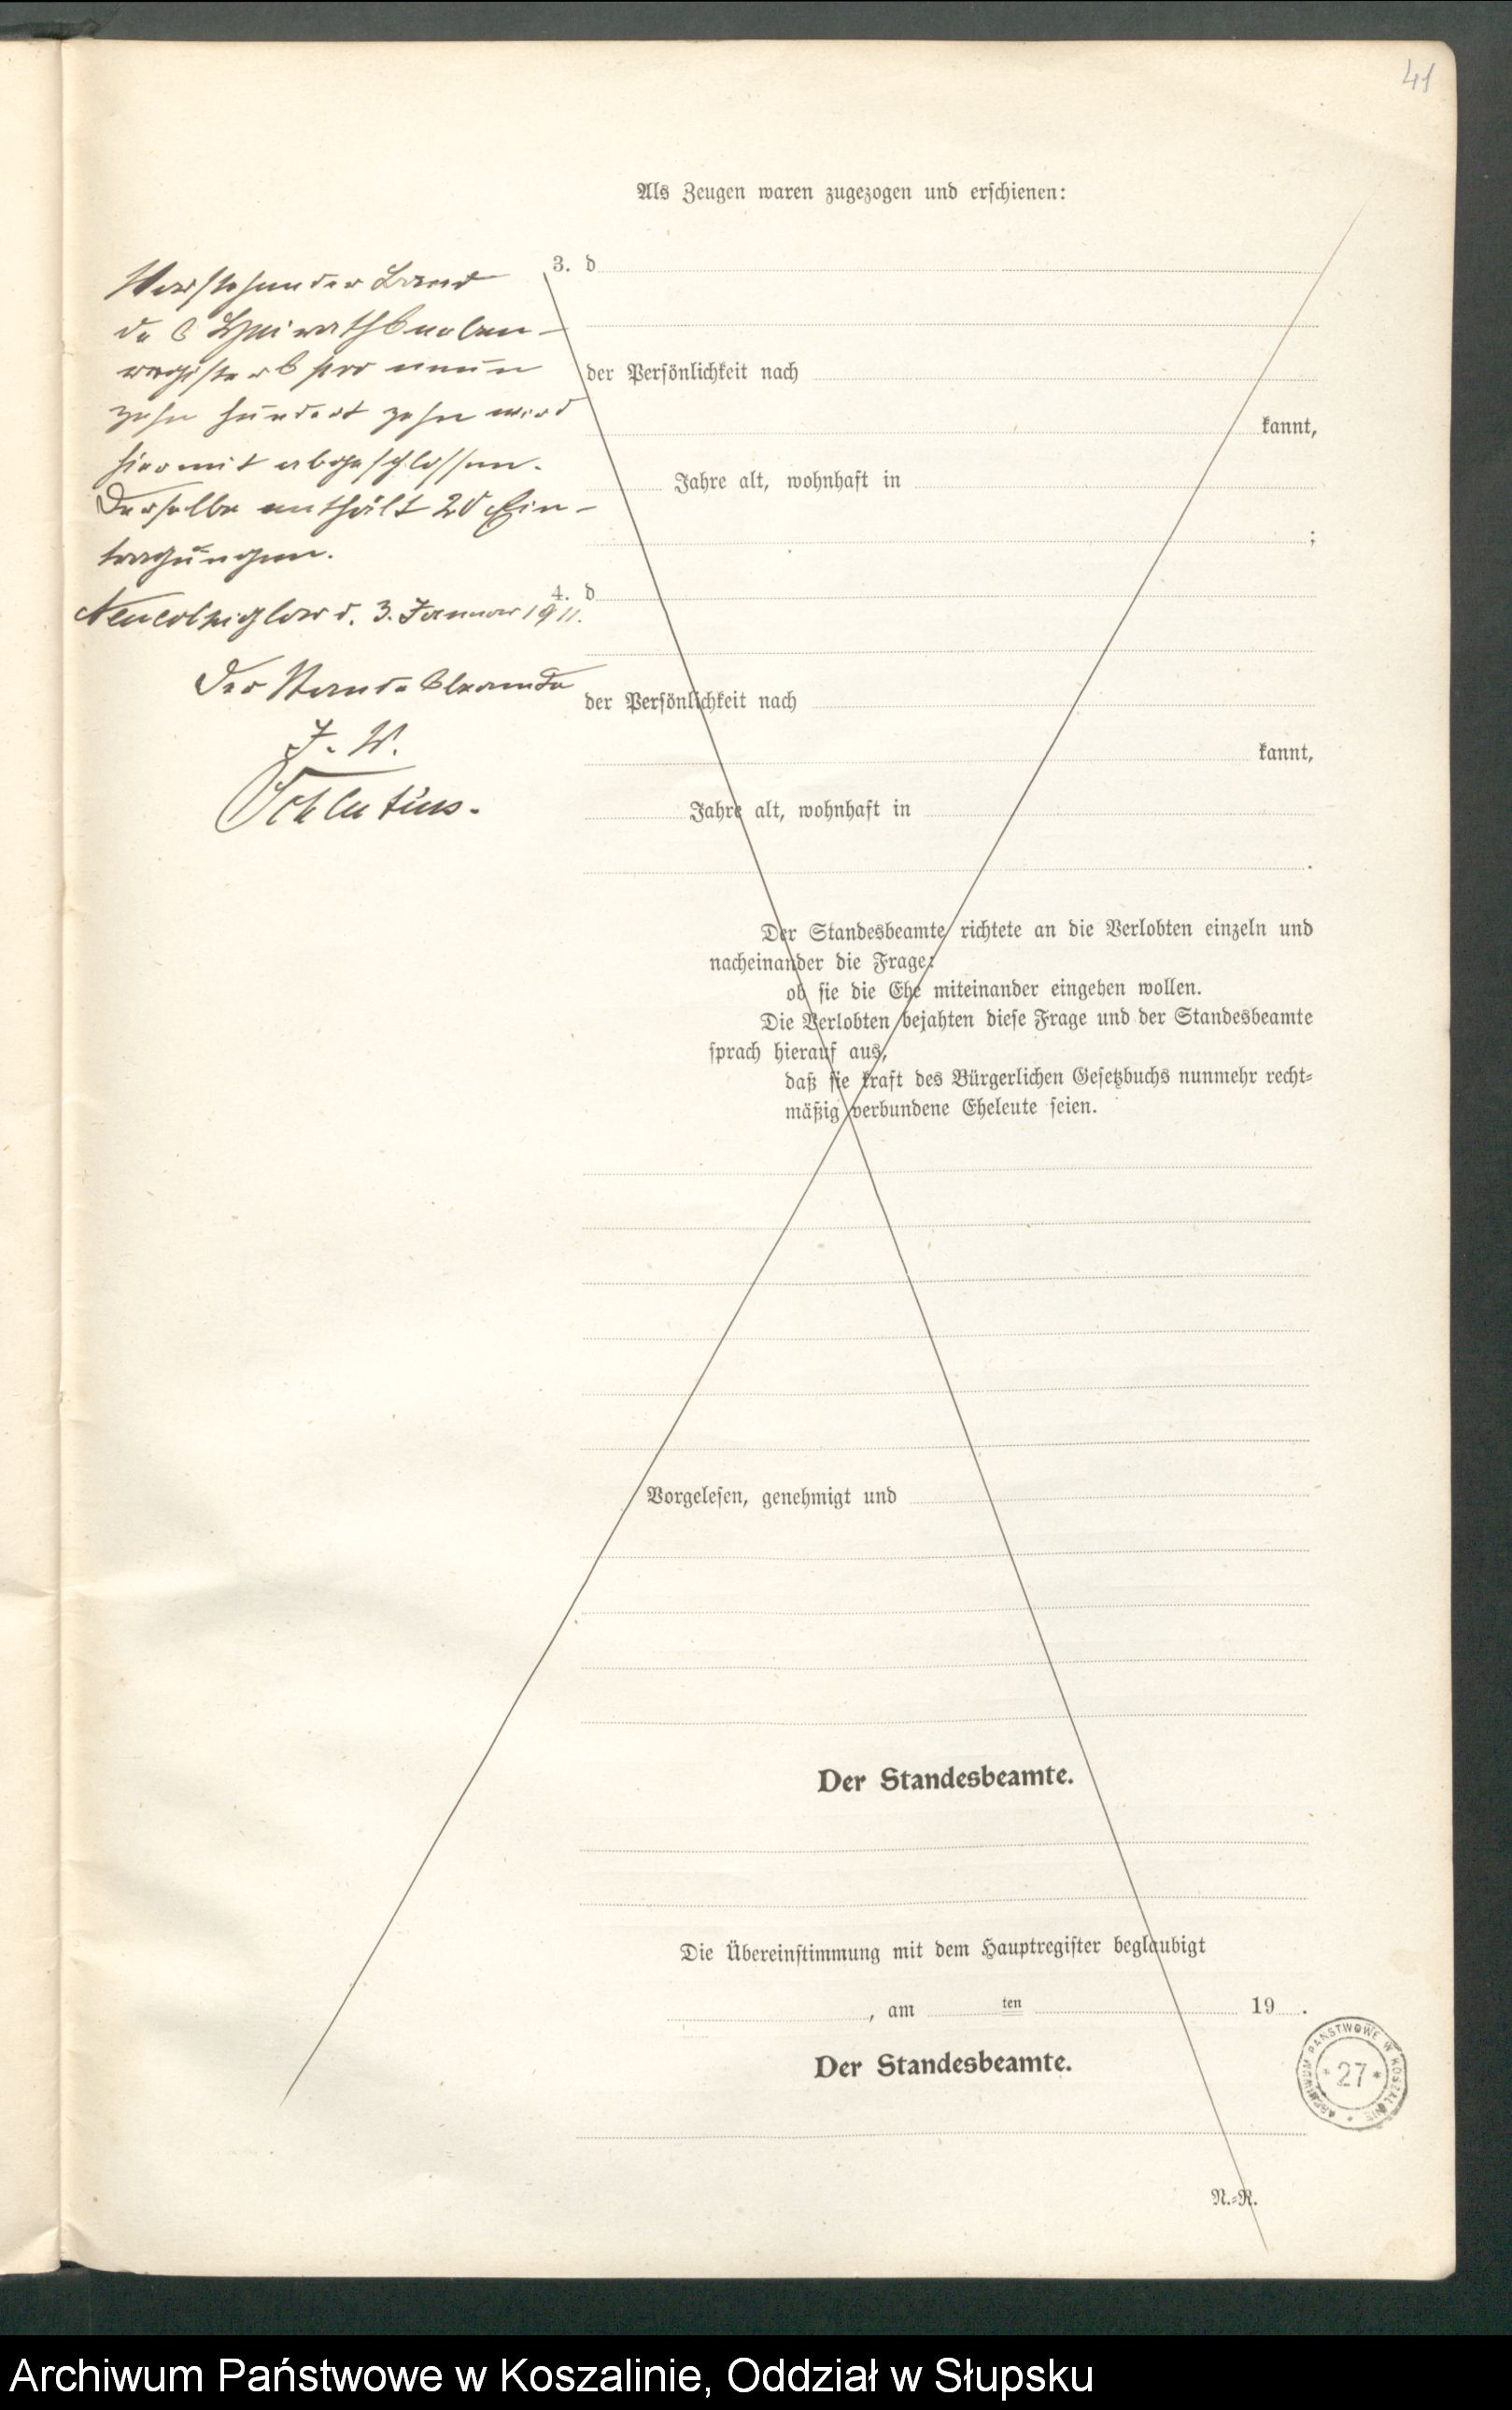 41
Als Zeugen waren zugezogen und erschienen:
Vorstehender Band
des Heirathsneben-
registers pro neun
zehn hundert zehn wird
hiermit abgeschlossen.
Derselbe enthält 20 Ein-
tragungen.
d. 3. Januar 1911.
Der Standesbeamte
J. V.
3. d
der Persönlichkeit nach
kannt,
Jahre alt, wohnhaft in
;
4. d
der Persönlichkeit nach
kannt,
Jahre alt, wohnhaft in
.
Der Standesbeamte richtete an die Verlobten einzeln und
nacheinander die Frage:
ob sie die Ehe miteinander eingehen wollen.
Die Verlobten bejahten diese Frage und der Standesbeamte
sprach hierauf aus,
daß sie kraft des Bürgerlichen Gesetzbuchs nunmehr recht-
mäßig verbundene Eheleute seien.
Vorgelesen, genehmigt und
Der Standesbeamte.
Die Übereinstimmung mit dem Hauptregister beglaubigt
, am ten 19 .
Der Standesbeamte.
ARCHIWUM PAŃSTWOWE W KOSZALINIE
* 27 *
N.-R.
Archiwum Państwowe w Koszalinie, Oddział w Słupsku